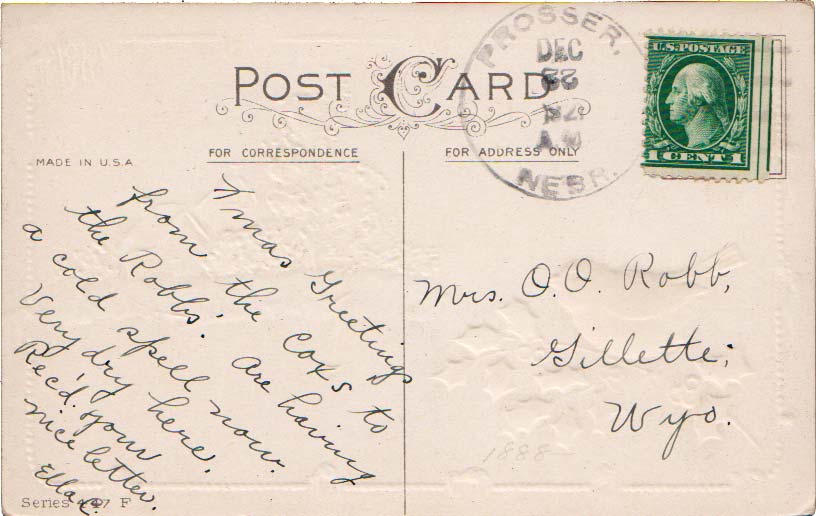 POST CARD
MADE IN U.S.A
FOR CORRESPONDENCE
FOR ADDRESS ONLY
PROSSER,
DEC
NEBR.
U.S. POSTAGE
1 CENT 1
Xmas Greetings
from the Coxs to
the Robbs'. Are having
a cold spell now.
Very dry here.
Rec'd. your
nice letter.
Ella
Mrs. O.O. Robb,
Gillette;
Wyo.
1888
Series F